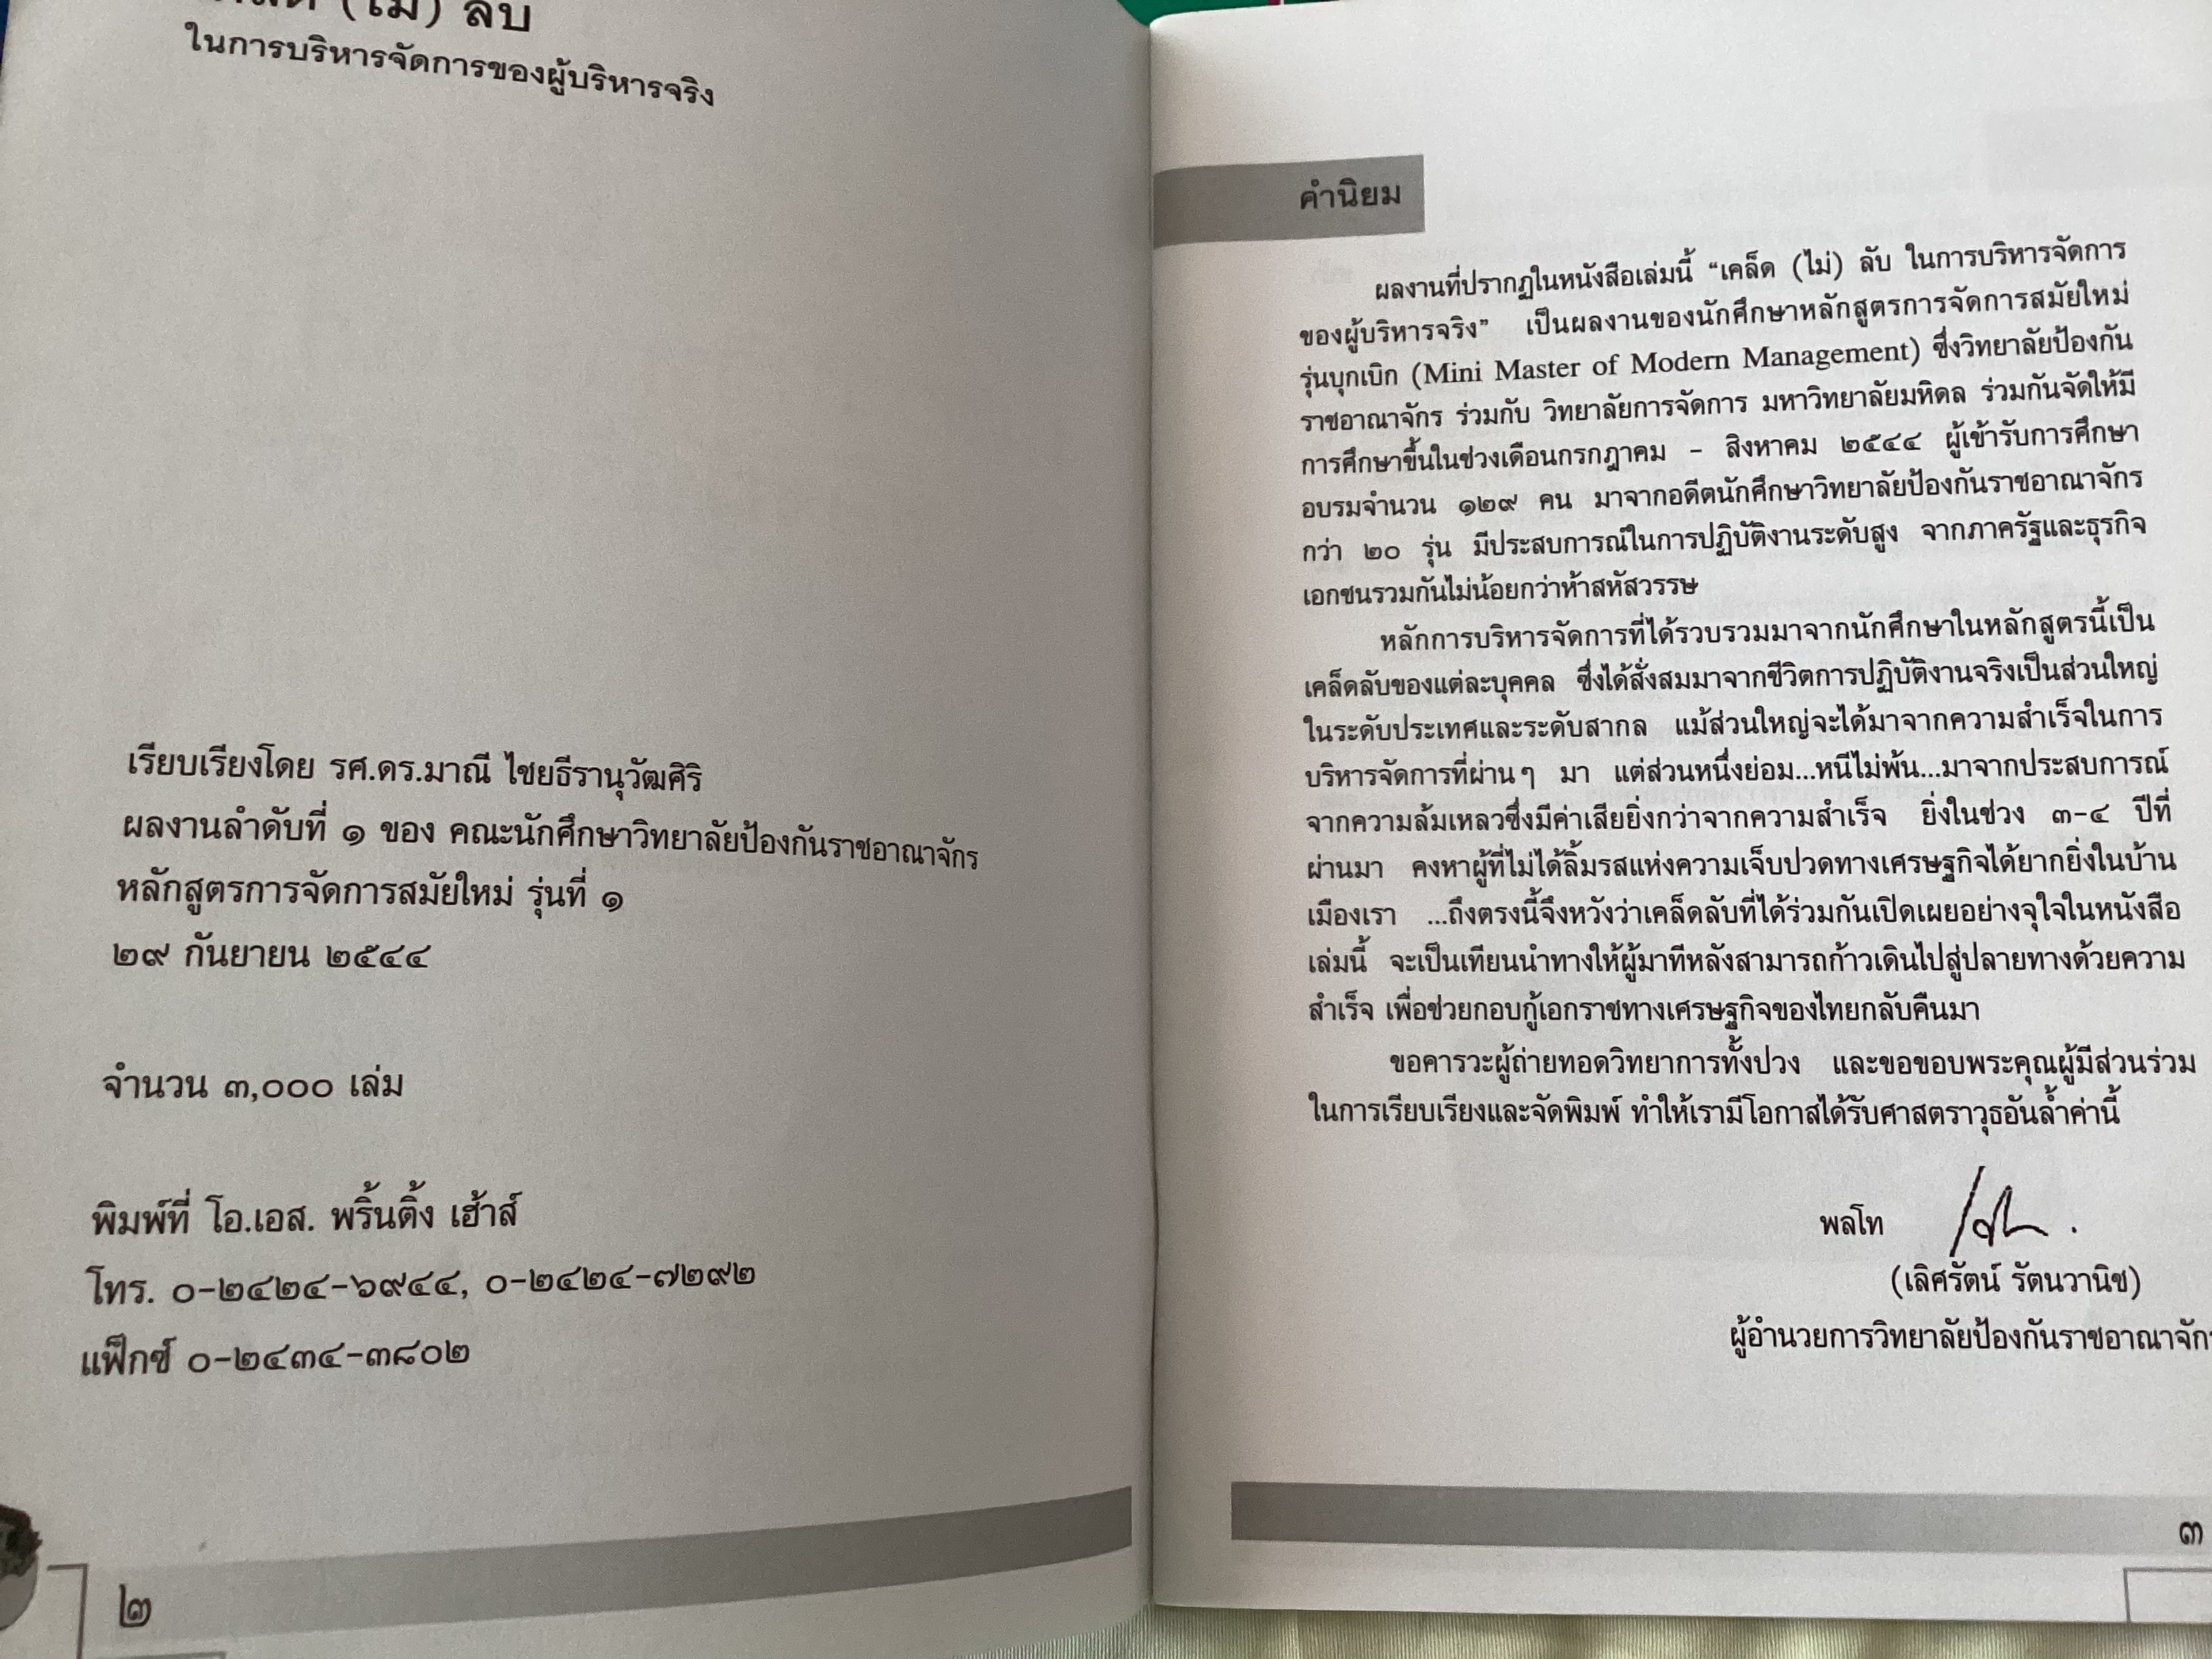 (ไม่) ลับ
ในการบริหารจัดการของผู้บริหารจริง
เรียบเรียงโดย รศ.ดร.มาณี ไชยธีรานุวัฒศิริ
ผลงานลำดับที่ ๑ ของ คณะนักศึกษาวิทยาลัยป้องกันราชอาณาจักร
หลักสูตรการจัดการสมัยใหม่ รุ่นที่ ๑
๒๙ กันยายน ๒๕๔๔
จำนวน ๓,๐๐๐ เล่ม
พิมพ์ที่ โอ.เอส. พริ้นติ้ง เฮ้าส์
โทร. ๐-๒๔๒๔-๖๙๔๔, ๐-๒๔๒๔-๗๒๙๒
แฟ็กซ์ ๐-๒๔๓๔-๓๘๐๒
๒
คำนิยม
ผลงานที่ปรากฏในหนังสือเล่มนี้ “เคล็ด (ไม่) ลับ ในการบริหารจัดการ
ของผู้บริหารจริง” เป็นผลงานของนักศึกษาหลักสูตรการจัดการสมัยใหม่
รุ่นบุกเบิก (Mini Master of Modern Management) ซึ่งวิทยาลัยป้องกัน
ราชอาณาจักร ร่วมกับ วิทยาลัยการจัดการ มหาวิทยาลัยมหิดล ร่วมกันจัดให้มี
การศึกษาขึ้นในช่วงเดือนกรกฎาคม - สิงหาคม ๒๕๔๔ ผู้เข้ารับการศึกษา
อบรมจำนวน ๑๒๙ คน มาจากอดีตนักศึกษาวิทยาลัยป้องกันราชอาณาจักร
กว่า ๒๐ รุ่น มีประสบการณ์ในการปฏิบัติงานระดับสูง จากภาครัฐและธุรกิจ
เอกชนรวมกันไม่น้อยกว่าห้าสหัสวรรษ
หลักการบริหารจัดการที่ได้รวบรวมมาจากนักศึกษาในหลักสูตรนี้เป็น
เคล็ดลับของแต่ละบุคคล ซึ่งได้สั่งสมมาจากชีวิตการปฏิบัติงานจริงเป็นส่วนใหญ่
ในระดับประเทศและระดับสากล แม้ส่วนใหญ่จะได้มาจากความสำเร็จในการ
บริหารจัดการที่ผ่านๆ มา แต่ส่วนหนึ่งย่อม...หนีไม่พ้น...มาจากประสบการณ์
จากความล้มเหลวซึ่งมีค่าเสียยิ่งกว่าจากความสำเร็จ ยิ่งในช่วง ๓-๔ ปีที่
ผ่านมา คงหาผู้ที่ไม่ได้ลิ้มรสแห่งความเจ็บปวดทางเศรษฐกิจได้ยากยิ่งในบ้าน
เมืองเรา ...ถึงตรงนี้จึงหวังว่าเคล็ดลับที่ได้ร่วมกันเปิดเผยอย่างจุใจในหนังสือ
เล่มนี้ จะเป็นเทียนนำทางให้ผู้มาทีหลังสามารถก้าวเดินไปสู่ปลายทางด้วยความ
สำเร็จ เพื่อช่วยกอบกู้เอกราชทางเศรษฐกิจของไทยกลับคืนมา
ขอคารวะผู้ถ่ายทอดวิทยาการทั้งปวง และขอขอบพระคุณผู้มีส่วนร่วม
ในการเรียบเรียงและจัดพิมพ์ ทำให้เรามีโอกาสได้รับศาสตราวุธอันล้ำค่านี้
พลโท
(เลิศรัตน์ รัตนวานิช)
ผู้อำนวยการวิทยาลัยป้องกันราชอาณาจักร
๓